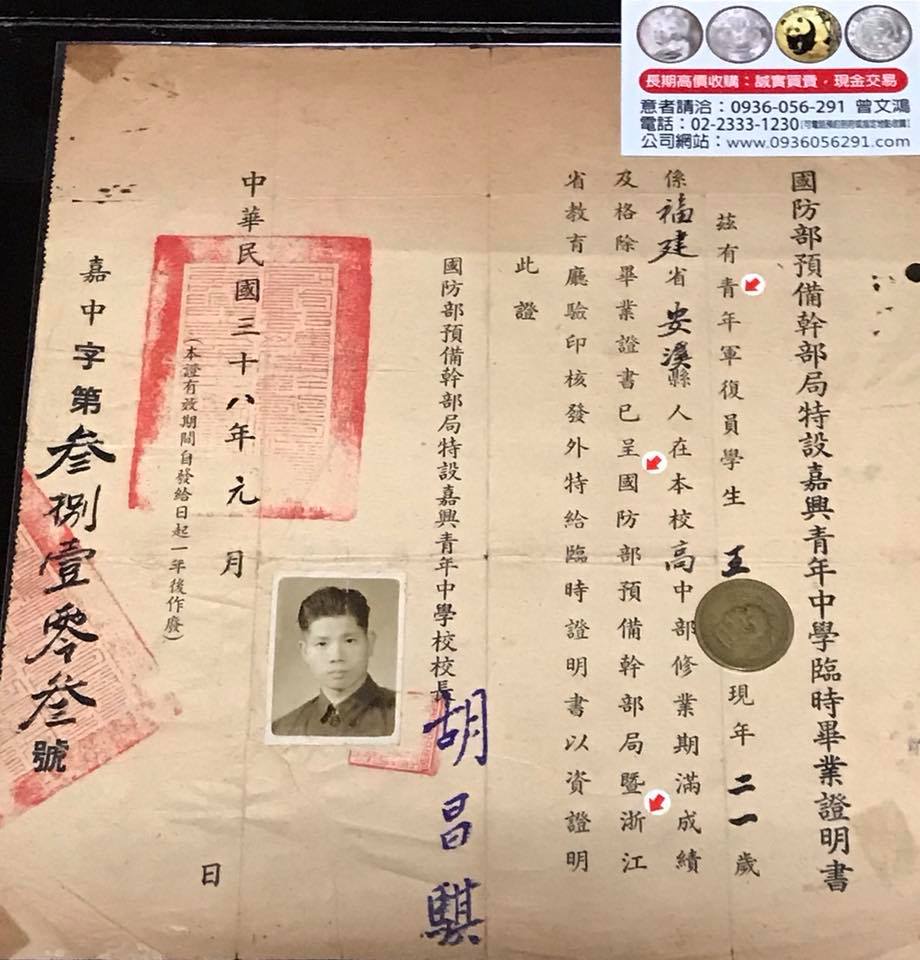 長期高價收購：誠實買賣，現金交易
意者請洽：0936-056-291 曾文鴻
電話：02-2333-1230
公司網站：www.0936056291.com
國防部預備幹部局特設嘉興青年中學臨時畢業證明書
茲有青年軍復員學生 王 現年二一歲
係福建省安溪縣人在本校高中部修業期滿成績
及格除畢業證書已呈國防部預備幹部局暨浙江
省教育廳驗印核發外特給臨時證明書以資證明
此證
國防部預備幹部局特設嘉興青年中學校校長胡昌騏
中華民國三十八年元月 日
（本證有效期間自發給日起一年後作廢）
嘉中字第叁捌壹零叁號